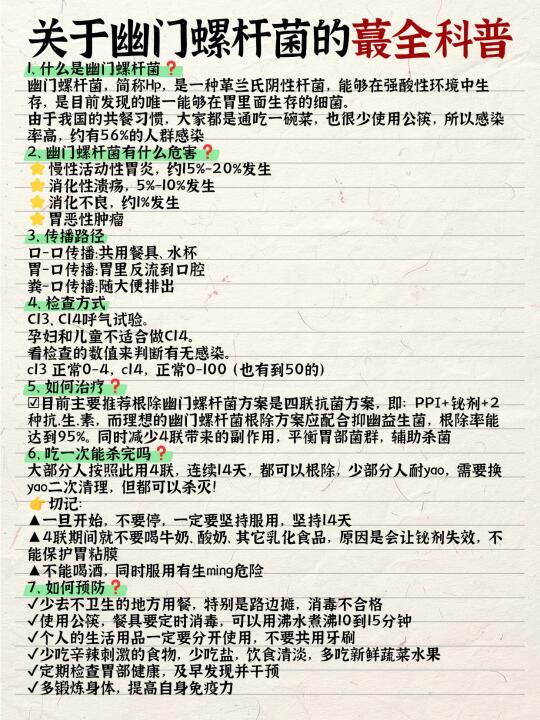 关于幽门螺杆菌的蕞全科普
1、什么是幽门螺杆菌❓
幽门螺杆菌，简称Hp，是一种革兰氏阴性杆菌，能够在强酸性环境中生
存，是目前发现的唯一能够在胃里面生存的细菌。
由于我国的共餐习惯，大家都是通吃一碗菜，也很少使用公筷，所以感染
率高，约有56%的人群感染
2、幽门螺杆菌有什么危害❓
⭐慢性活动性胃炎，约15%-20%发生
⭐消化性溃疡，5%-10%发生
⭐消化不良，约1%发生
⭐胃恶性肿瘤
3、传播路径
口-口传播:共用餐具、水杯
胃-口传播:胃里反流到口腔
粪-口传播:随大便排出
4、检查方式
C13、C14呼气试验。
孕妇和儿童不适合做C14。
看检查的数值来判断有无感染。
c13 正常0-4，c14，正常0-100（也有到50的）
5、如何治疗❓
☑目前主要推荐根除幽门螺杆菌方案是四联抗菌方案，即：PPI+铋剂+2
种抗.生.素，而理想的幽门螺杆菌根除方案应配合抑幽益生菌，根除率能
达到95%。同时减少4联带来的副作用，平衡胃部菌群，辅助杀菌
6、吃一次能杀完吗❓
大部分人按照此用4联，连续14天，都可以根除，少部分人耐yao，需要换
yao二次清理，但都可以杀灭！
👉切记：
▲一旦开始，不要停，一定要坚持服用，坚持14天
▲4联期间就不要喝牛奶、酸奶、其它乳化食品，原因是会让铋剂失效，不
能保护胃粘膜
▲不能喝酒，同时服用有生ming危险
7、如何预防❓
✓少去不卫生的地方用餐，特别是路边摊，消毒不合格
✓使用公筷，餐具要定时消毒，可以用沸水煮沸10到15分钟
✓个人的生活用品一定要分开使用，不要共用牙刷
✓少吃辛辣刺激的食物，少吃盐，饮食清淡，多吃新鲜蔬菜水果
✓定期检查胃部健康，及早发现并干预
✓多锻炼身体，提高自身免疫力